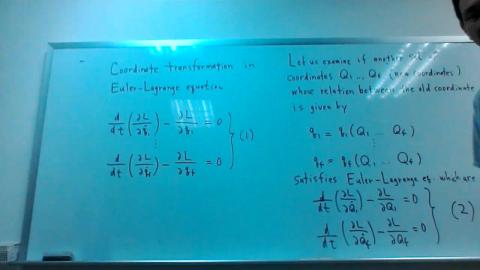 Coordinate transformation in
Euler-Lagrange equation
d/dt (∂L/∂q̇₁) − ∂L/∂q₁ = 0
⋮
d/dt (∂L/∂q̇f) − ∂L/∂qf = 0 } (1)
Let us examine if another set of
coordinates Q₁ ... Qf (new coordinates)
whose relation between the old coordinate
is given by
q₁ = q₁(Q₁ ... Qf)
⋮
qf = qf(Q₁ ... Qf)
Satisfies Euler-Lagrange eq. which are
d/dt (∂L/∂Q̇₁) − ∂L/∂Q₁ = 0
d/dt (∂L/∂Q̇f) − ∂L/∂Qf = 0 } (2)